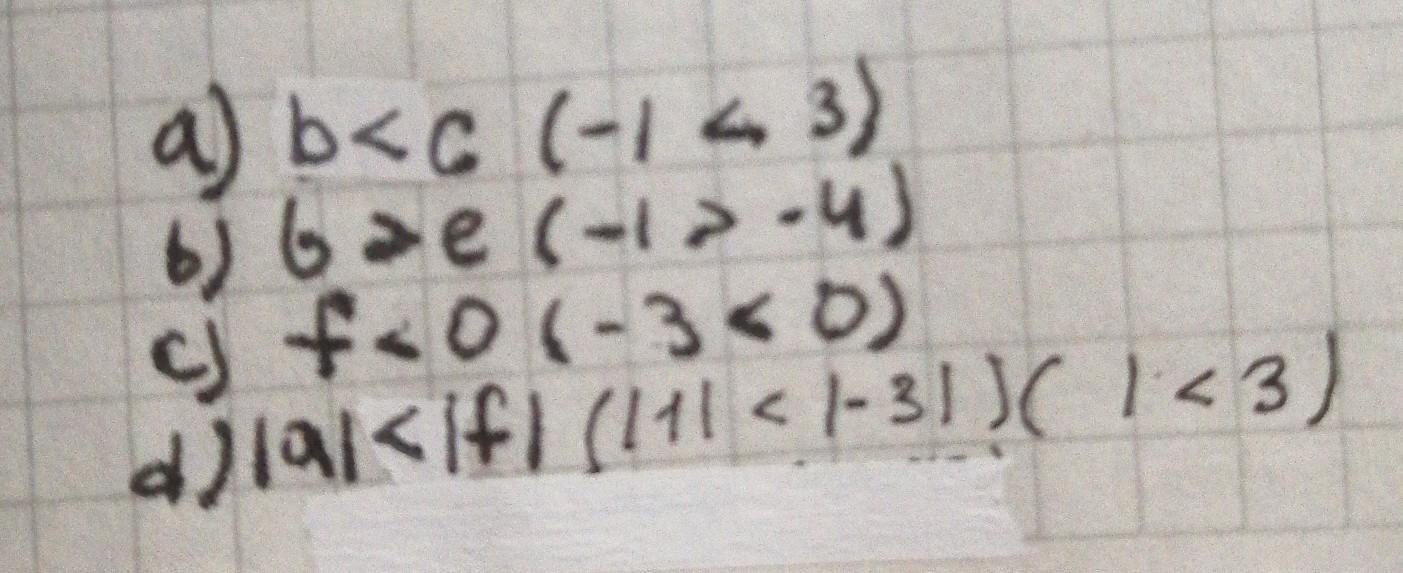 a) b < c (-1 < 3)
b) b > e (-1 > -4)
c) f < 0 (-3 < 0)
d) |a| < |f| (|1| < |-3|) (1 < 3)